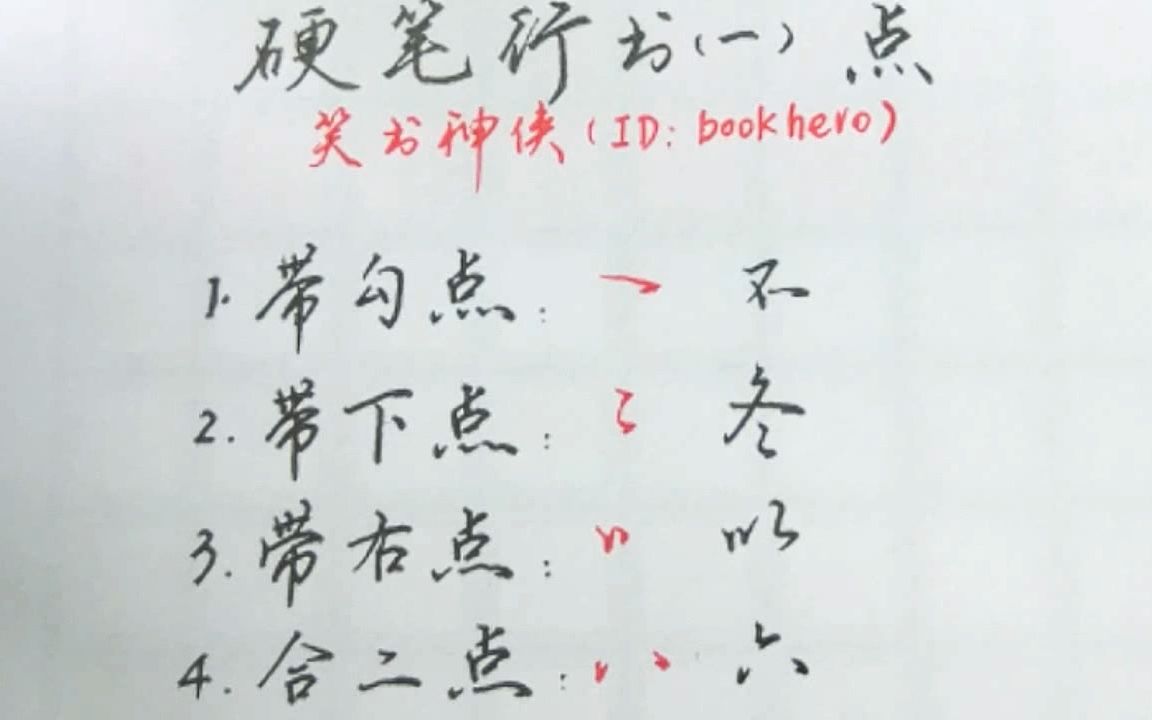 硬笔行书(一) 点
笑书神侠(ID: bookhero)
1. 带勾点: 不
2. 带下点: 冬
3. 带右点: 以
4. 合二点: 六